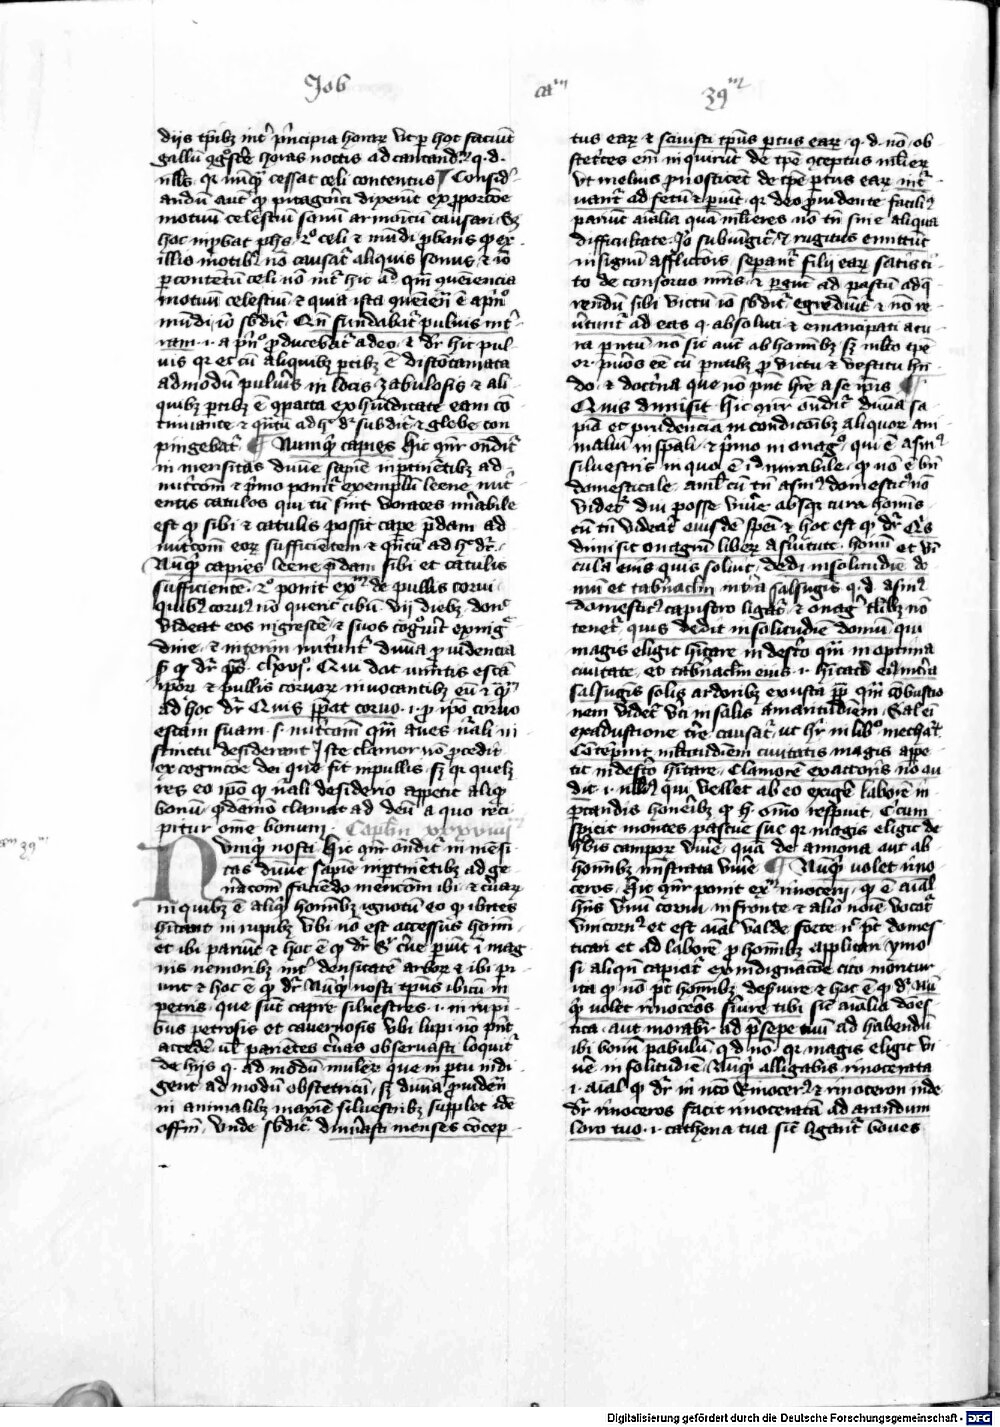 Job
ca^m
39^m
diis tpibz int' principia horar vt p hoc faciut
gallu horas noctis ad cantand q. d.
nllus qr nunq cessat celi contentus Consid
andu aut q pitagorici dixerut ex pporcoe
motuu celestiu sonu armoicu causari sz
hoc inpbat phs 2° celi & mudi pbans q ex
illis motibz no causat aliquis sonus & io
p contentu celi no int' hic
motuu celestiu & quia ista e a pn°
mudi io sbdit Qn fundabat puluis in t'
ram .i. a pn° producebat a deo & dr hic pul
uis qr et cu aliquibz ptibz e discotinuata
ad modu pulueris in locis zabulosis & ali
quibz ptibz e 9pacta ex huiditate eam co
tinuante & ad h° dr subdit & glebe con
pingebat Nunq capies Hic qnr ondit
in mensitas diuine sapie in ptinetibz ad
nutricom & primo ponit exemplu leene nut
entis catulos qui cu sint voraces mirabile
est q sibi & catulis possit cape pdam ad
nutricom eor sufficientem & ad h° dr
Nuqd capies leene pdam sibi et catulis
sufficiente 2° ponit ex^m de pullis corui
quibz coruus no querit cibu vii diebz donec
videat eos nigresce & suos cognouit ex nig
dine & interim nutriunt diuina prouidencia
Qui dat iumentis esca
ipor & pullis coruor inuocantibz eu &
ad hoc dr Quis ppat coruo .i. pro ipo coruo
escam suam .s. nutricom qm aues nali in
stinctu desiderant iste clamor no pcedit
ex cognicoe dei que sit in pullis sz qr quelz
res eo ipo q nali desiderio appetit aliqd
bonu quodamo clamat ad deu a quo reci
pitur ome bonum. Caplm xxxviiii
Nunqd nosti Hic qnr ondit in mesi
tas diuine sapie in ptinetibz ad ge
nacom faciedo mencom ibi & cuar
in quibz e aliqd homibz ignotu eo q ibices
hitant in rupibz vbi no est accessus homi
et ibi pariut & hoc e q dr cerue pariut i mag
nis nemoribz int' densitate arbor & ibi pi
unt & hoc e q dr Nuqd nosti tpus ibicu in
petris. que sut capre siluestres .i. in rupi
bus petrosis et cauernosis vbi lupi no pnt
accede ul parietes cuas obseruasti loquit
de hiis q. ad modu mulier que in ptu indi
gent ad modu obstetricu. sz diuina puiden
in animalibz maxie siluestribz supplet ide
offm. vnde sbdit dinumerasti menses cocep
tus ear & scuisti tpus ptus ear. q. d. no. ob
stetices eni inquirut de tpe 9ceptus mulier
vt melius pnosticent de tpe ptus ear incur
uant ad fetu & pariut. qr deo prouidente facili9
pariut aialia qua mulieres no tn sine aliqua
difficultate. Io subiungit & rugitus emittut
in signu afflictois separant filii ear satis ci
to de consorcio mris & pgut ad pastu ad q
rendu sibi victu io sbdit egrediut & no re
uertunt ad eas q. absoluti & emancipati a cu
ra parentu no sic aut ab homibz sz multo tpe
or pueros ee cu parentibz pro victu & vestitu hn
do & doctrina que no pnt hre a se ipis
Quis dimisit Hic qnr ondit diuina sa
pia et prudencia in condicoibz aliquor ani
maliu in spali & primo in onag° qui e asin9
siluestris in quo e id mirabile q no e bn
domesticale. aial cu tn asin9 domestic9 no
videt diu posse viue absqz cura homis
cu tn videat eiusde spei & hoc est q dr Qis
dimisit onagru liberu a seruitute. homi et vi
cula eius quis soluit. dedi in solitudie do
mu et tabnaclm in tra salsuginis q. d. asin9
domestic9 capistro ligat & onag talibz no
tenet quis dedit in solitudie domu. qui
magis eligit hitare in deserto qm in optima
ciuitate. et tabnaclm eius .i. hitaco ei9 in tra
salsuginis solis ardoribz exusta ppt qm combustio
nem videt verti in salis amaritudiem. Sal ei
ex adustione tre causat ut hr in libro mechar
Cotepnit multitudiem ciuitatis magis appe
tit in deserto hitare. Clamore exactoris no au
dit .i. nllus qui vellet ab eo exige labore in
portandis honeribz q h. omo respuit Circum
spicit montes pascue sue qr magis eligit de
hbis campor viue qua de annona aut ab
homibz ministrata viue Nuqd volet rino
ceros. Hic qnr ponit ex^m rinoceri. q e aial
hns vnu cornu in fronte & alio noie vocat
vnicorn9 et est aial valde forte n pt domes
ticari et ad labore p homibz applicari ymo
si aliqn capiat ex indignacoe cito moritur
ita q no pt homibz deseruire & hoc e q dr Nu
qd volet rinoceros seruire tibi sicut aialia does
tica. aut morabr ad psepe tuu ad habendu
ibi bonu pabulu. q d no. qr magis eligit vi
ue in solitudie. Nuqd alligabis rinocerata
.i. aial q dr in nto Rinocer9 & rinoceron inde
dr rinoceros facit rinocerata ad arandum
loro tuo .i. cathena tua sicut ligant boues
Digitalisierung gefördert durch die Deutsche Forschungsgemeinschaft - DFG